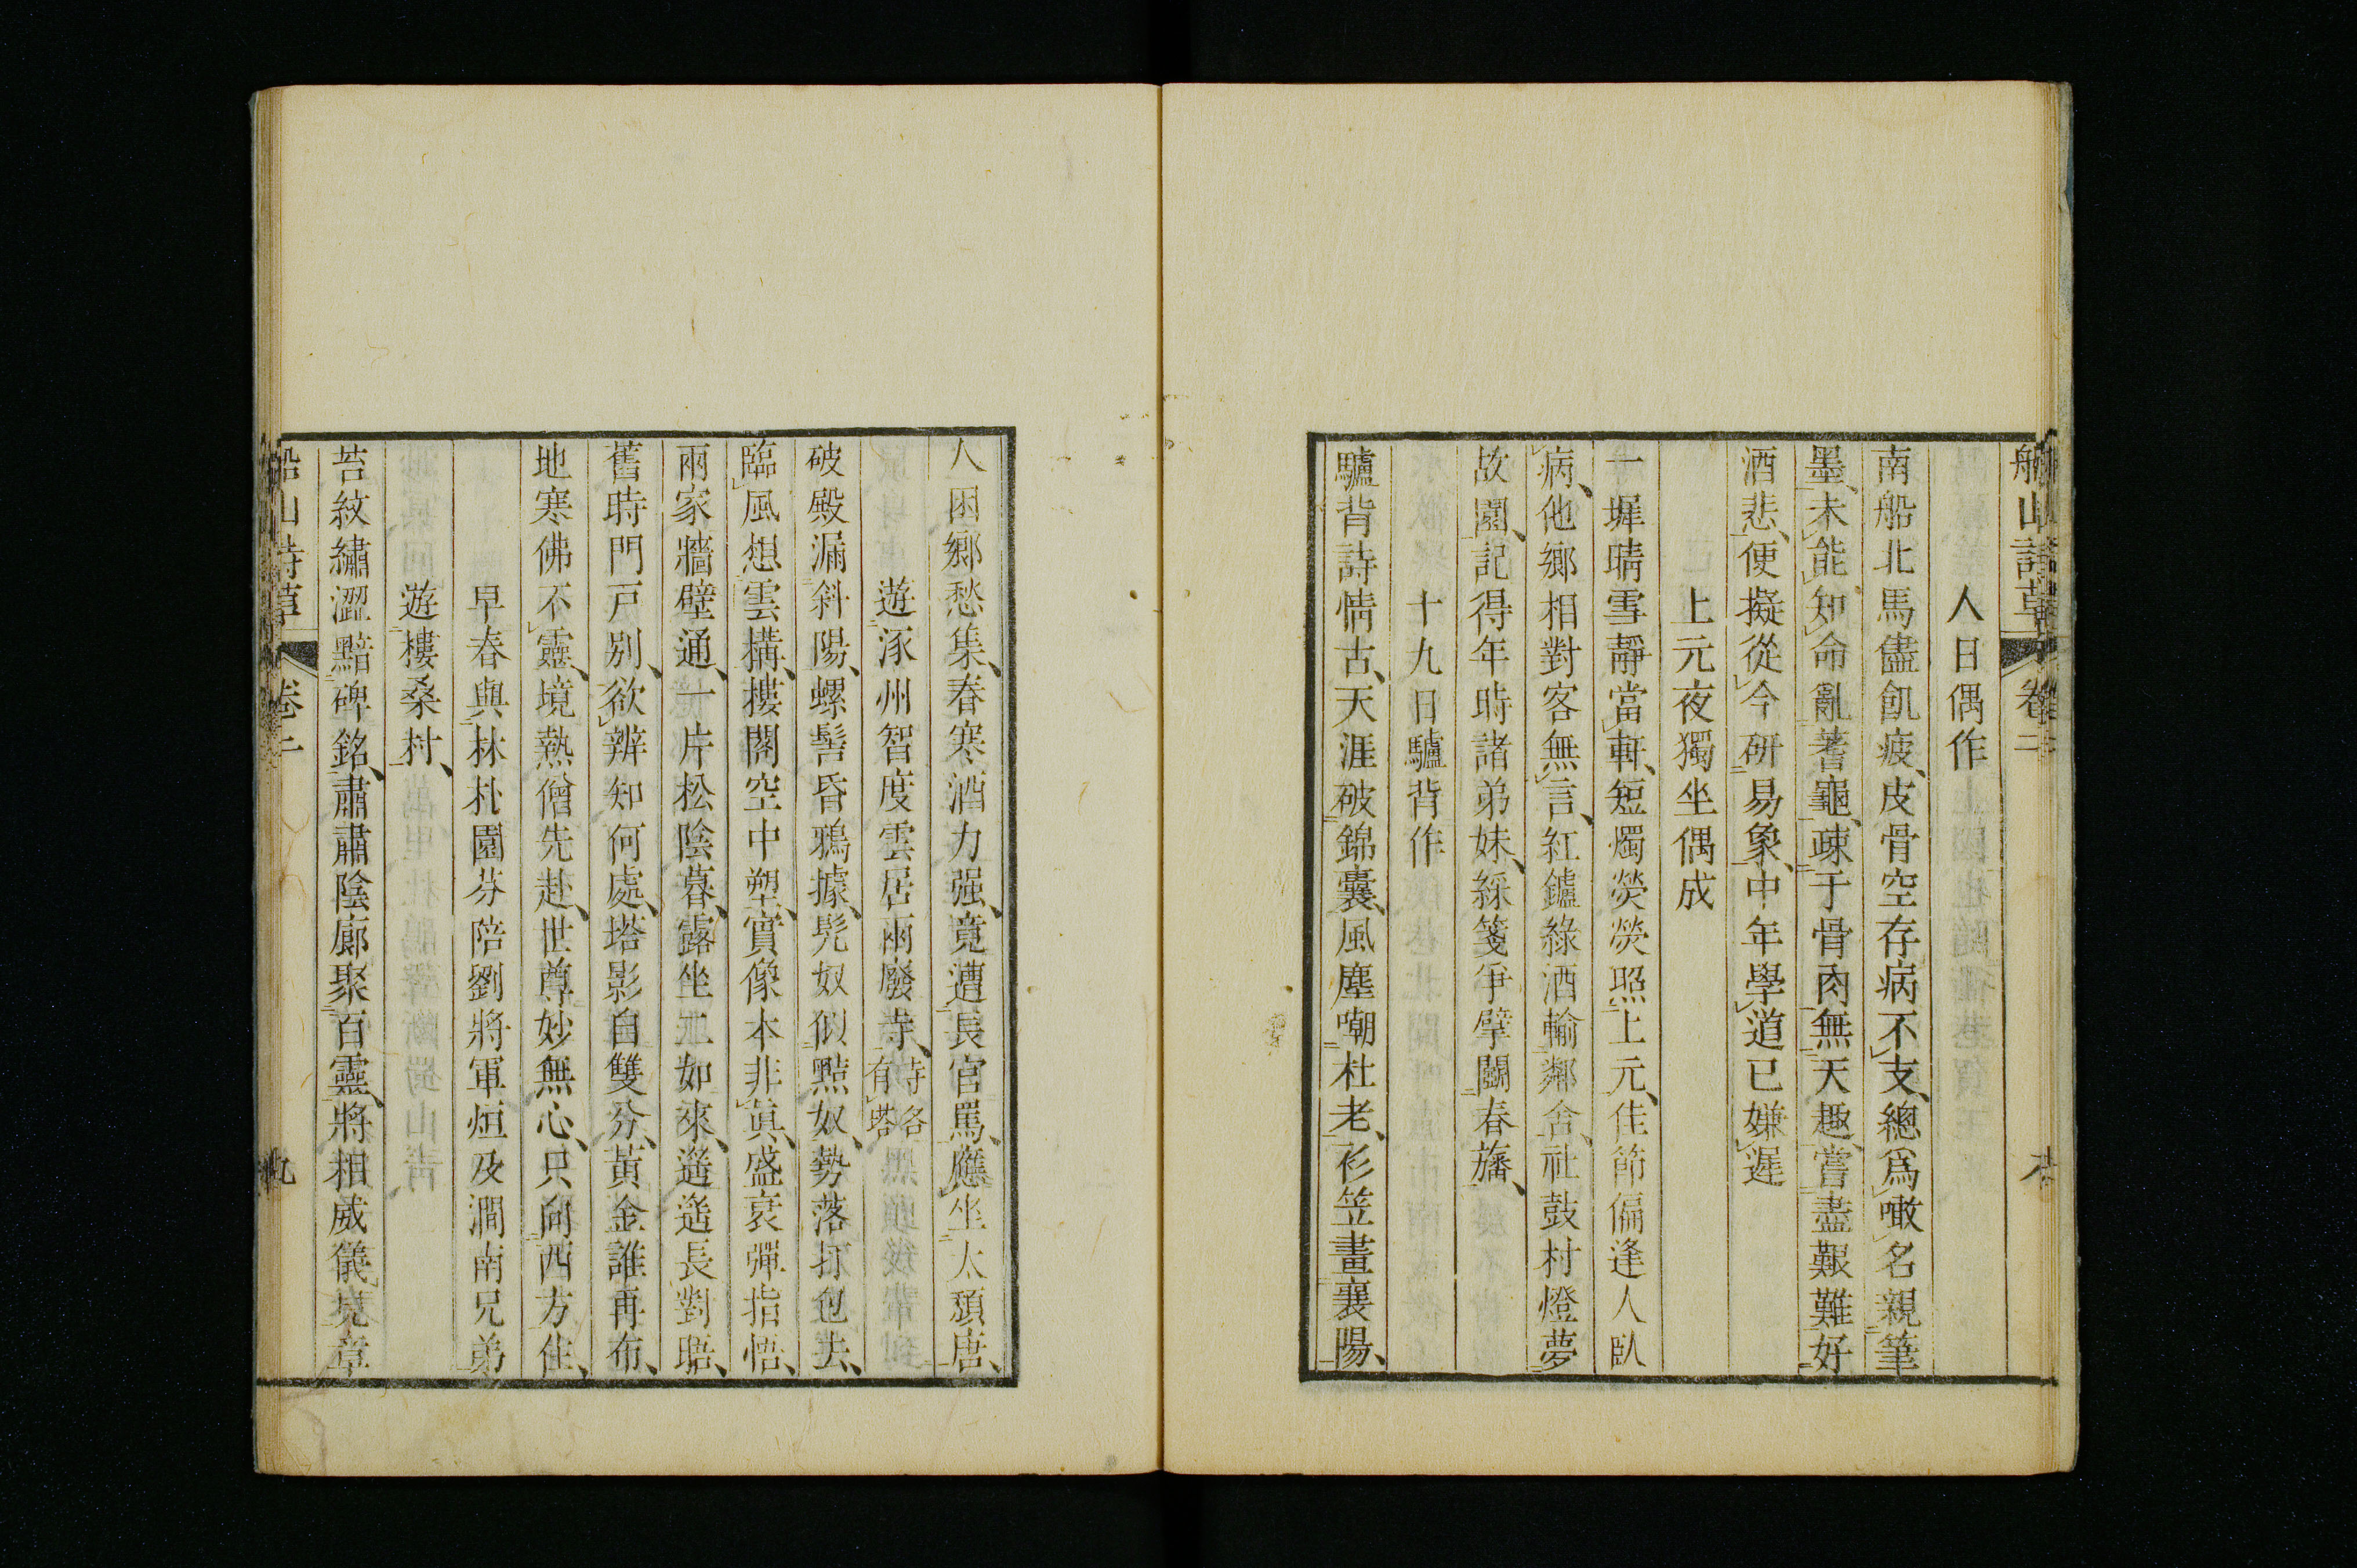 船山詩草 卷二
人日偶作
南船北馬儘飢疲、皮骨空存病不支、總爲噉名親筆
墨、未能知命亂蓍龜、疎于骨肉無天趣、嘗盡艱難好
酒悲、便擬從今研易象、中年學道已嫌遲
上元夜獨坐偶成
一墀晴雪靜當軒、短燭熒熒照上元、佳節偏逢人臥
病、他鄉相對客無言、紅鑪綠酒輸鄰舍、社鼓村燈夢
故園、記得年時諸弟妹、綵箋爭擘鬭春旛、
十九日驢背作
驢背詩情古、天涯破錦囊、風塵嘲杜老、衫笠畫襄陽、
人困鄉愁集、春寒酒力强、竟遭長官罵、應坐太頹唐、
遊涿州智度雲居兩廢寺、寺各有塔
破殿漏斜陽、螺髻昏鴉據、髡奴似黠奴、勢落打包去、
臨風想雲構、樓閣空中塑、實像本非眞、盛衰彈指悟、
兩家牆壁通、一片松陰暮、露坐二如來、遥遥長對晤、
舊時門戸別、欲辨知何處、塔影自雙分、黃金誰再布、
地寒佛不靈、境熱僧先赴、世尊妙無心、只向西方住、
早春與林朴園芬陪劉將軍烜及澗南兄弟
遊樓桑村、
苔紋繡澀黯碑銘、肅肅陰廊聚百靈、將相威儀冕章
船山詩草 卷二 九